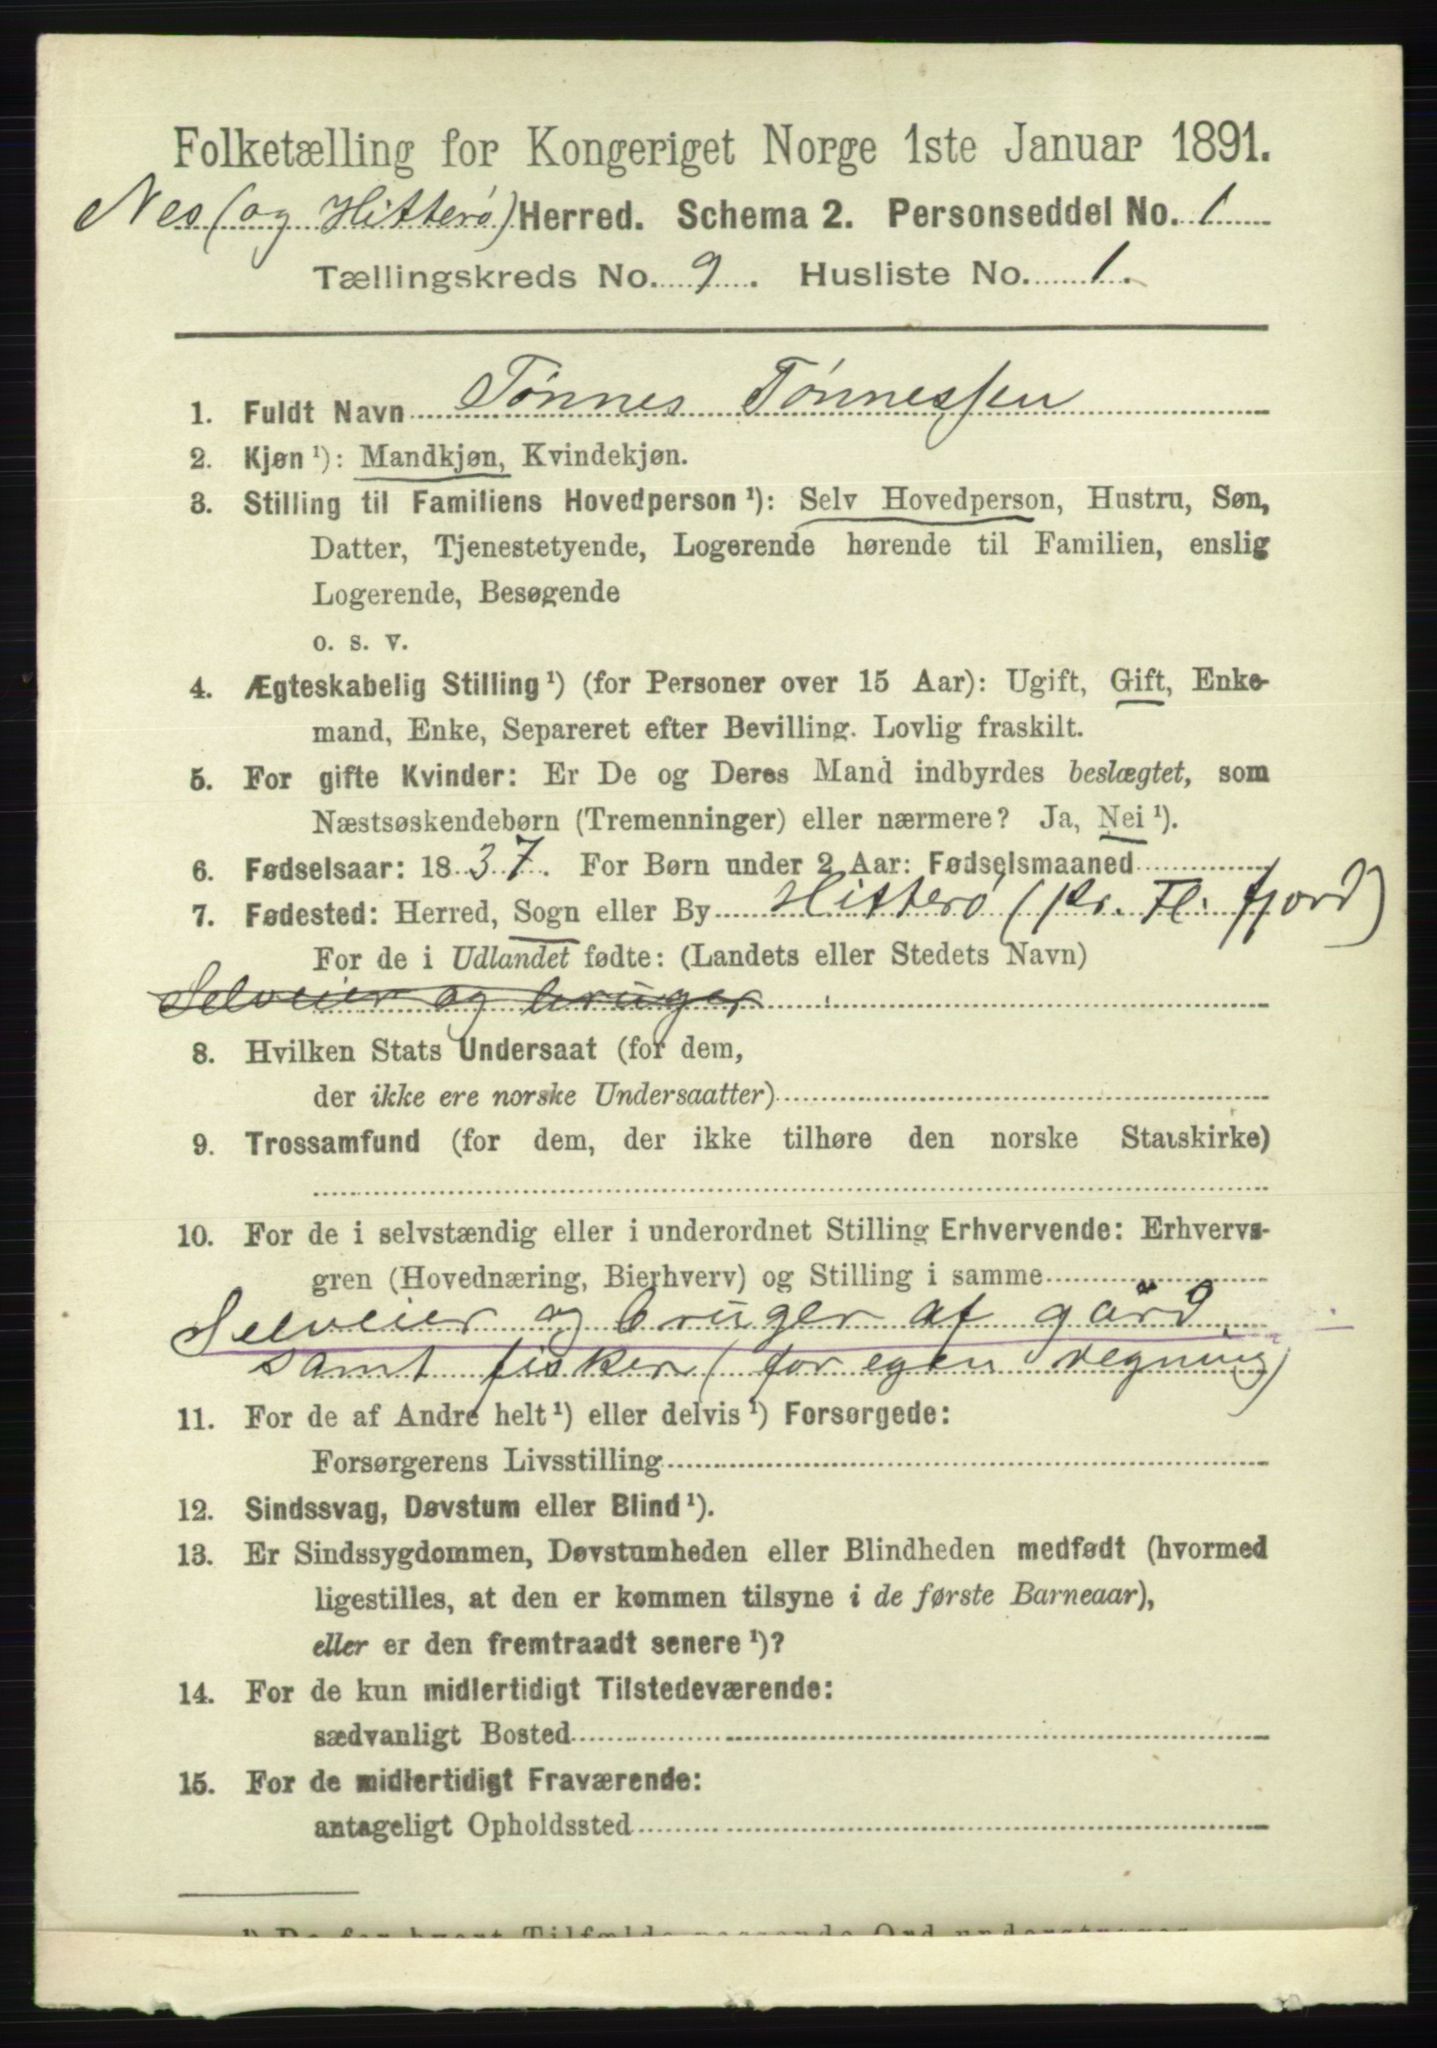 Folketælling for Kongeriget Norge 1ste Januar 1891.
Nes (og Hitterø) Herred. Schema 2. Personseddel No. 1
Tællingskreds No. 9. Husliste No. 1.
1. Fuldt Navn Tønnes Tønnessen
2. Kjøn¹): Mandkjøn, Kvindekjøn.
3. Stilling til Familiens Hovedperson¹): Selv Hovedperson, Hustru, Søn,
Datter, Tjenestetyende, Logerende hørende til Familien, enslig
Logerende, Besøgende
o. s. v.
4. Ægteskabelig Stilling¹) (for Personer over 15 Aar): Ugift, Gift, Enke-
mand, Enke, Separeret efter Bevilling. Lovlig fraskilt.
5. For gifte Kvinder: Er De og Deres Mand indbyrdes beslægtet, som
Næstsøskendebørn (Tremenninger) eller nærmere? Ja, Nei¹).
6. Fødselsaar: 1837. For Børn under 2 Aar: Fødselsmaaned
7. Fødested: Herred, Sogn eller By Hitterø (Pr. Fl. fjord)
For de i Udlandet fødte: (Landets eller Stedets Navn)
Selveier og bruger
8. Hvilken Stats Undersaat (for dem,
der ikke ere norske Undersaatter)
9. Trossamfund (for dem, der ikke tilhøre den norske Statskirke)
10. For de i selvstændig eller i underordnet Stilling Erhvervende: Erhvervs-
gren (Hovednæring, Bierhverv) og Stilling i samme
Selveier og bruger af gård,
samt fisker (for egen regning)
11. For de af Andre helt¹) eller delvis¹) Forsørgede:
Forsørgerens Livsstilling
12. Sindssvag, Døvstum eller Blind¹).
13. Er Sindssygdommen, Døvstumheden eller Blindheden medfødt (hvormed
ligestilles, at den er kommen tilsyne i de første Barneaar),
eller er den fremtraadt senere¹)?
14. For de kun midlertidigt Tilstedeværende:
sædvanligt Bosted
15. For de midlertidigt Fraværende:
antageligt Opholdssted
¹) De for hvert Tilfælde passende Ord understreges